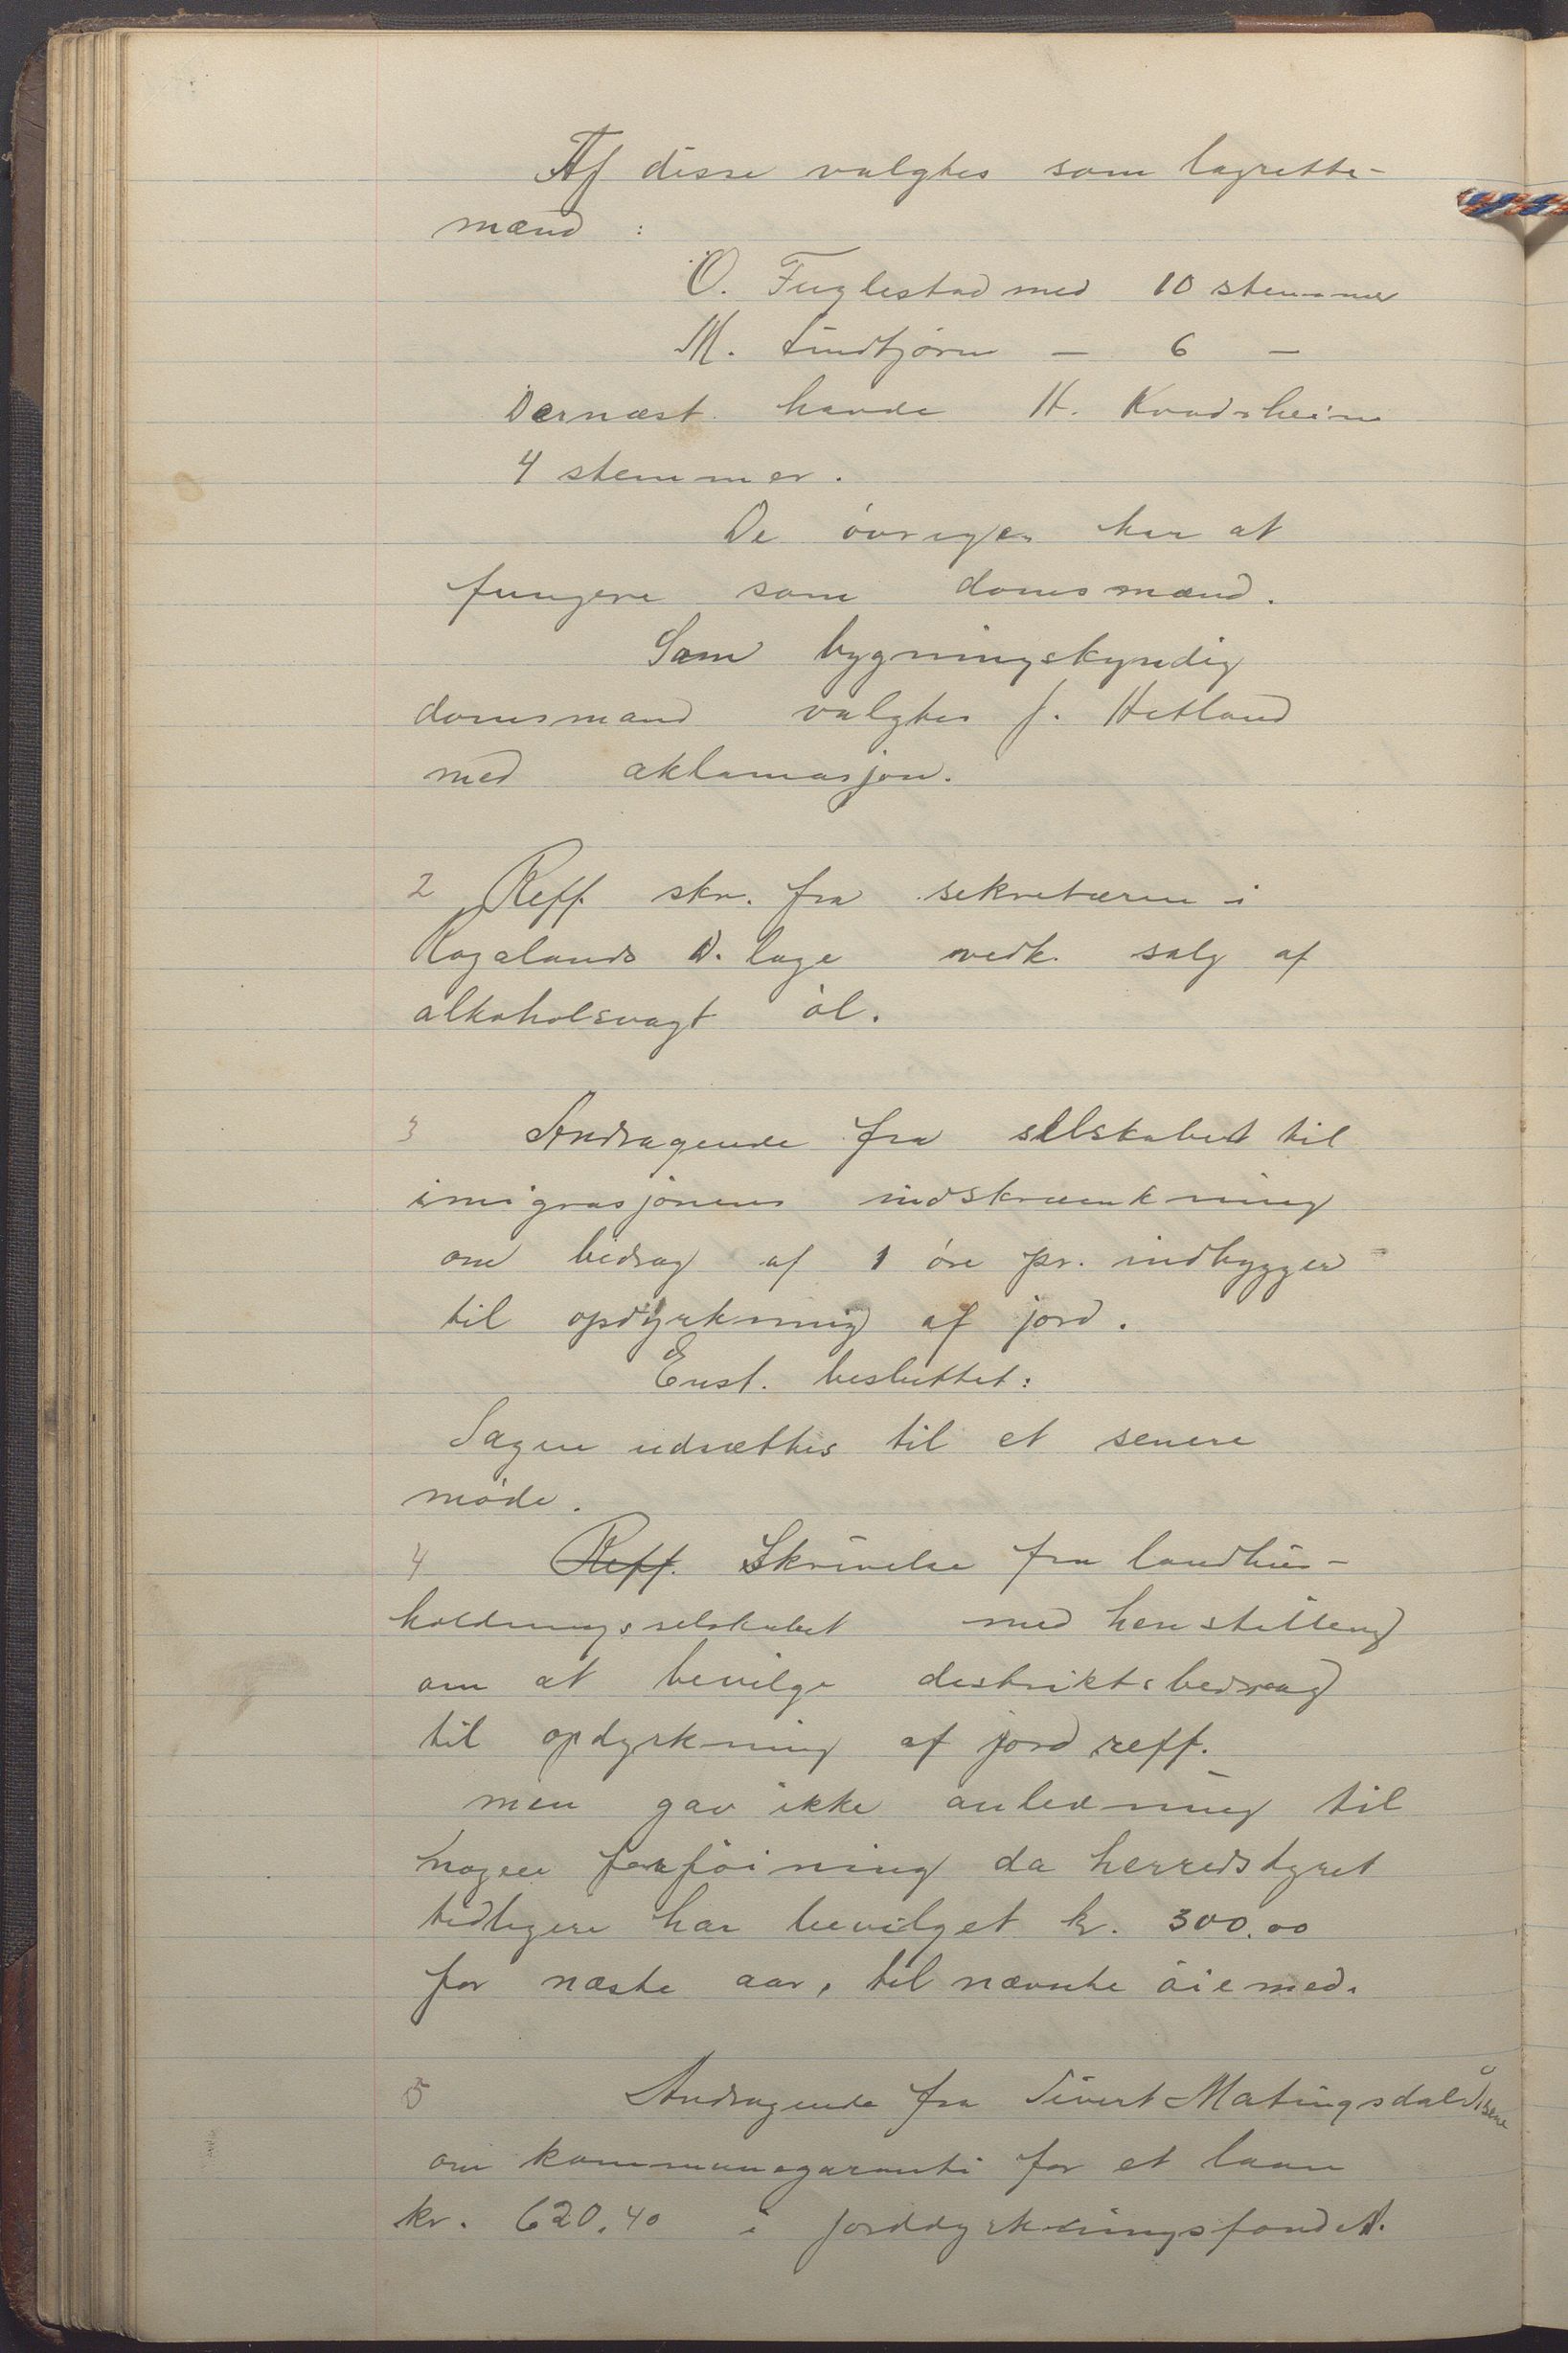 Af disse valgtes som lagrette-
mænd :
O. Fuglestad med 10 stemmer
M. Lindtjørn — 6 —
Dernæst havde H. Kvadsheim
4 stemmer.
De øvrige har at
fungere som domsmænd.
Som bygningskyndig
domsmand valgtes J. Hetland
med aklamasjon.
2 Reff. skr. fra sekretæren i
Rogalands D. lage vedk. salg af
alkoholsvagt øl.
3 Andragende fra selskabet til
imigrasjonens indskrænkning
om bidrag af 1 øre pr. indbygger
til opdyrkning af jord.
Enst. besluttet:
Sagen udsættes til et senere
møde.
4 Reff. Skrivelse fra landhus-
holdningsselskabet med henstilling
om at bevilge destriktsbedrag
til opdyrkning af jord reff.
men gav ikke anledning til
nogen forføining da herredstyret
tidligere har bevilget kr. 300.00
for næste aar, til nævnte øiemed.
5 Andragende fra Sivert Matingsdal
om kommunegaranti for et laan
kr. 620.40 i jorddyrkningsfondet.